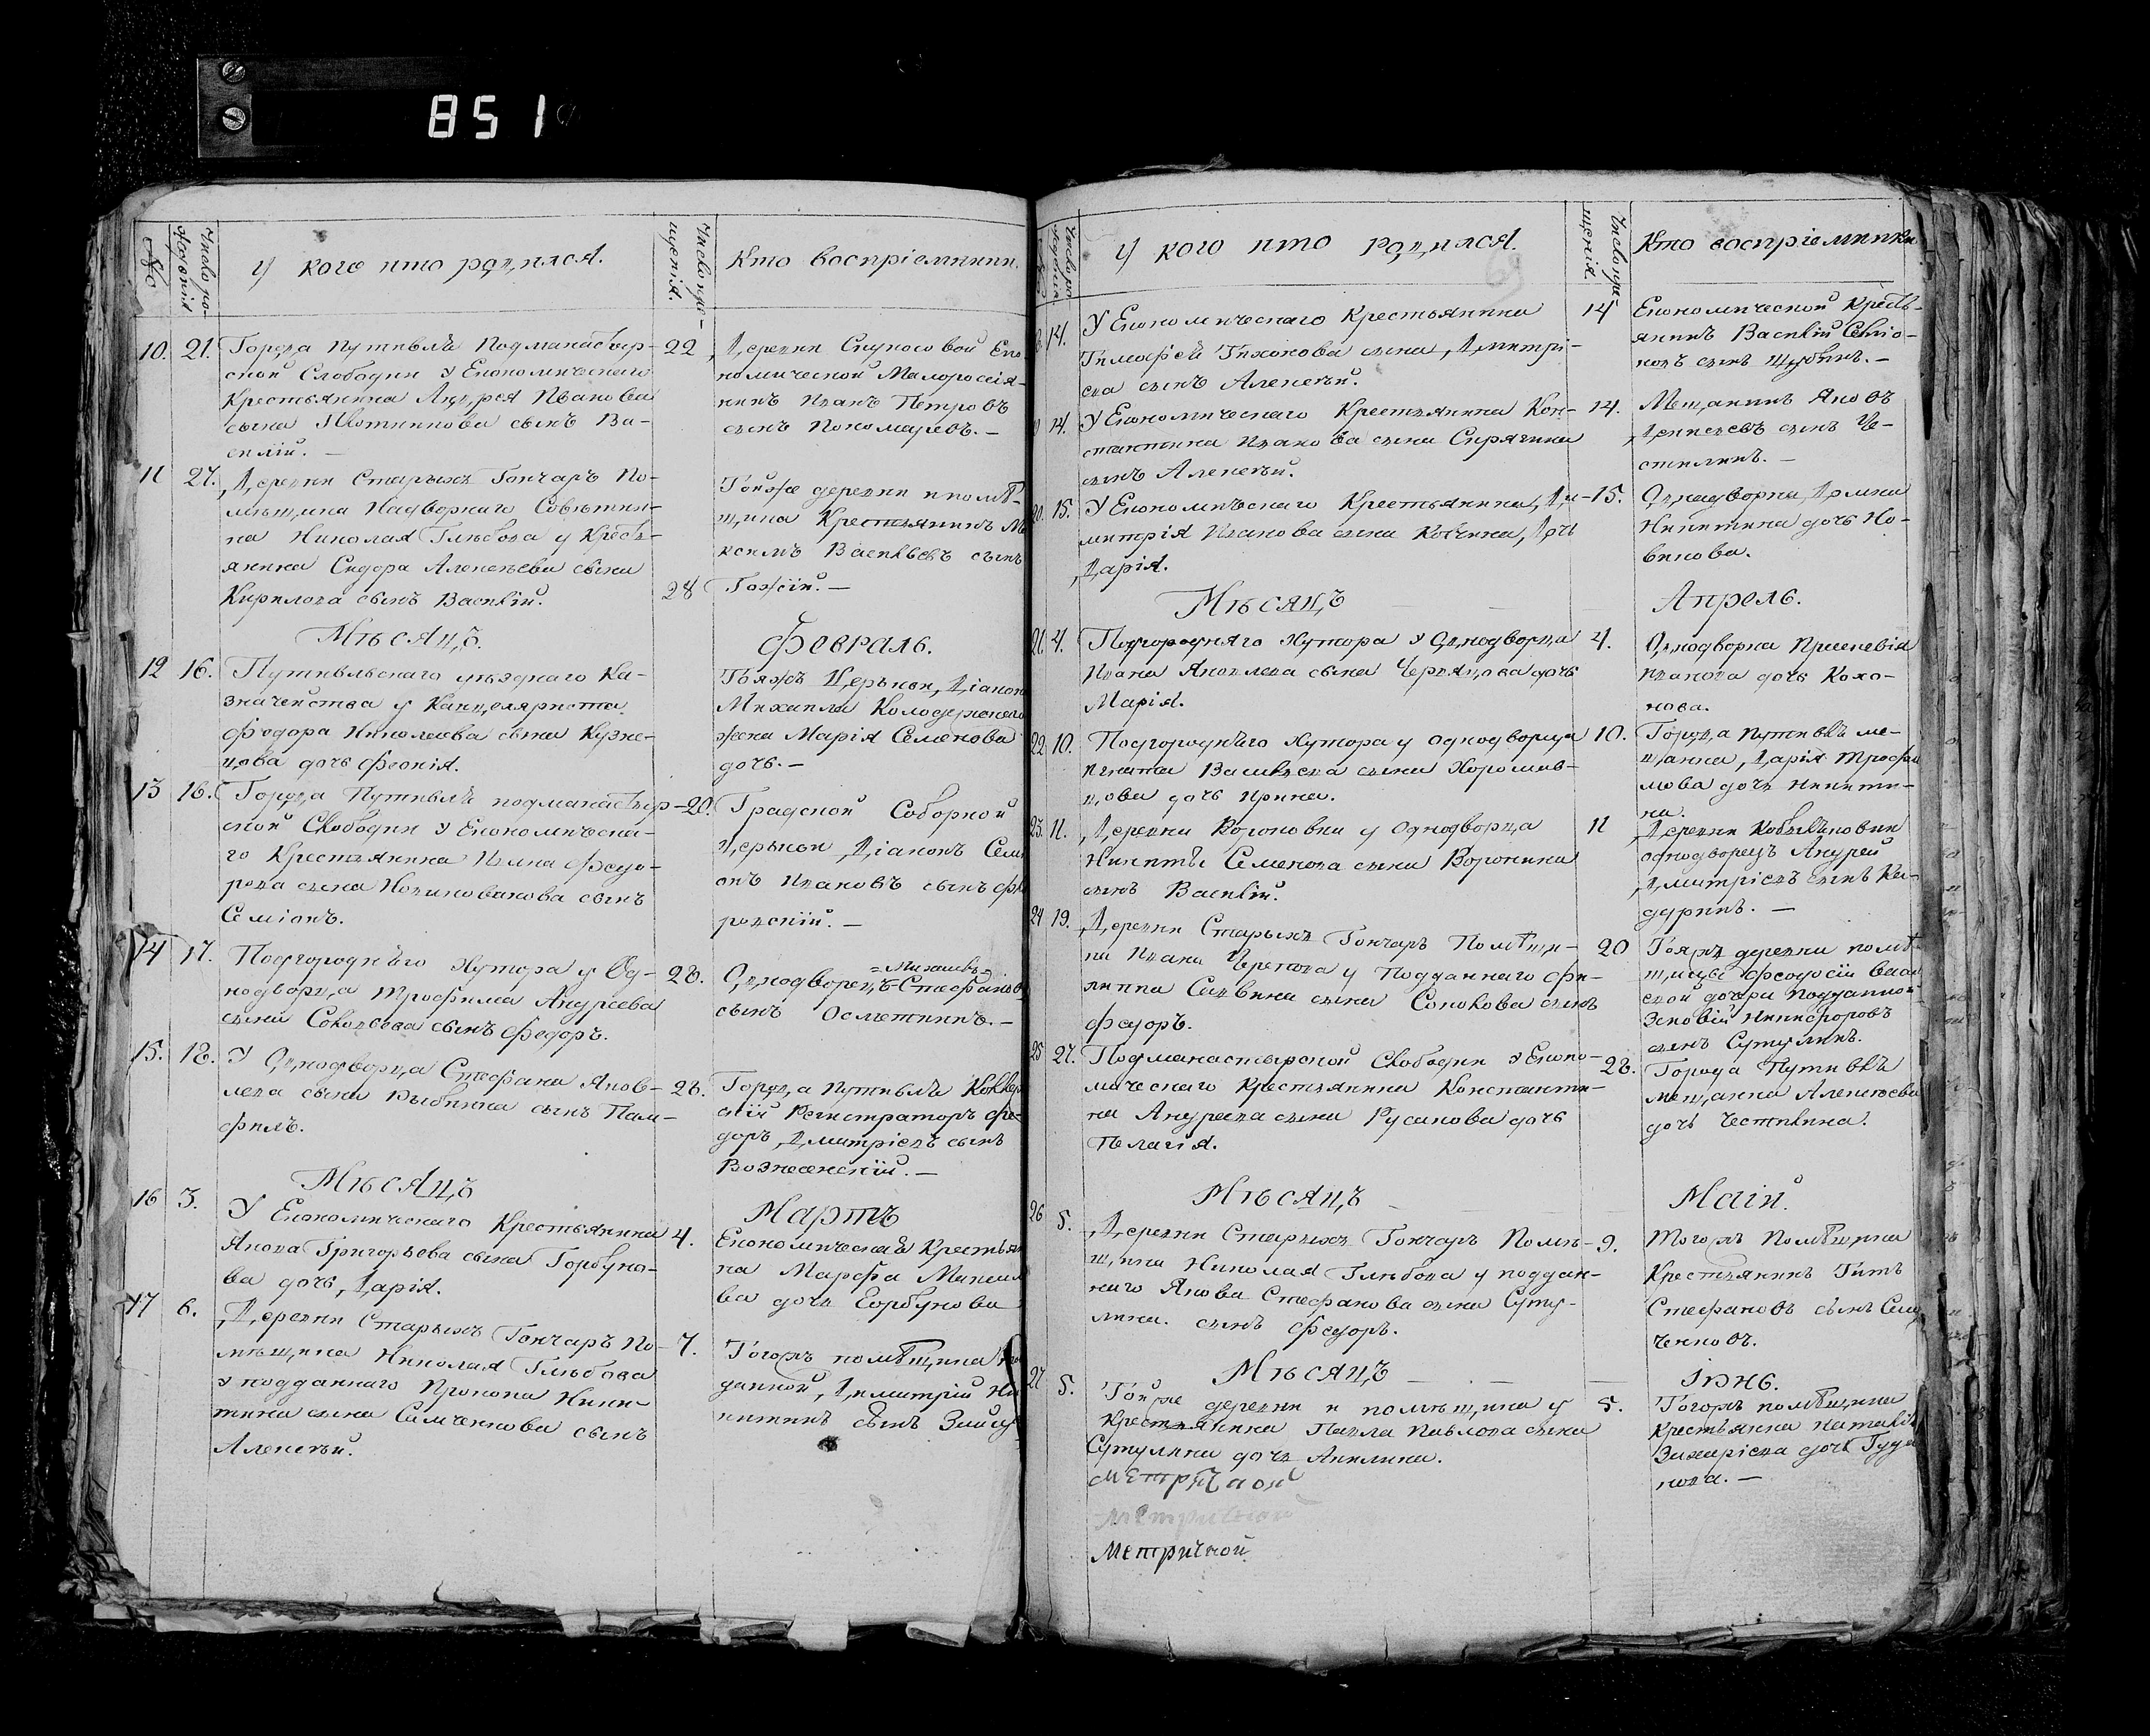 851
№
Число рожденія
У кого кто родился.
Число крещенія.
Кто воспріемники.
10. 21. Города Путивля Подманастыр-
ской Слободки у Економическаго
Крестьянина Андрея Иванова
сына сынъ Ва-
силій. —
22 Деревни Скуносовой Еко-
номической Малоросія-
нинъ Иванъ Петровъ
сынъ Пономаревъ. —
11 27. Деревни Старыхъ Гончаръ По-
мещика Надворнаго Советни-
ка Николая Глебова у Кресть-
янина Сидора Алексеева сына
Кирилова сынъ Василій.
28
Тойже деревни и поме-
щика Крестьянинъ Ма
ксимъ Васильевъ сынъ
Месяцъ. Февраль.
12 16. Путивльскаго уезднаго Ка-
значейства у Канцеляриста
Федора Николаева сына Кузне-
цова дочь Феонія.
Тояжъ Церькви Діакона
Михаила
жена Марія Семенова
дочь. —
13 16. Города Путивля подманастыр-
ской Слободки у Економическа-
го Крестьянина Федо-
рова сына сынъ
Семіонъ.
20. Градской Соборной
Церькви Діаконъ Сем
онъ Ивановъ сынъ
14 17. Подгороднего Хутора у Од-
нодворца Трофима Андреева
сына сынъ Федоръ.
28. = Михаилъ =
Однодворецъ Стефановъ
сынъ Осметкинъ. —
15. 18. У Однодворца Стефана Яков-
лева сына Рыбкина сынъ Пам-
филъ.
28. Города Путивля Коллеж
скій Регистраторъ Фе-
доръ Дмитріевъ сынъ
Вознесенскій. —
Месяцъ Мартъ
16 3. У Економическаго Крестьянина
Якова Григорьева сына Горбуно-
ва дочь Дарія.
4. Економическая Крестьян
ка Марфа
ва дочь Горбунова
17 6. Деревни Старыхъ Гончаръ По-
мещика Николая Глебова
у подданнаго Прокопа Ники-
тина сына Семченкова сынъ
Алексей.
7. Тогожъ помещика по
данной Димитрій Ни
китинъ сынъ
Число рожденія
У кого кто родился.
Число крещенія.
Кто воспріемники
14. У Економическаго Крестьянина
Тимофей Тихонова сына Дмитрі-
ева сынъ Алексей.
14 Економической Кресть-
янинъ Василій Семіо-
новъ сынъ —
14. У Економическаго Крестьянина Кон-
стантина Иванова сына Спрягина
сынъ Алексей.
14. Мещанинъ Яковъ
Денисевъ сынъ Че-
стикинъ. —
20. 15. У Економическаго Крестьянина Ди-
митрія Иванова сына Дочь
Дарія.
15. Однодворка Домна
Никитина дочь Но-
викова.
Месяцъ Апрель.
21. 4. Подгородняго Хутора у Однодворца
Ивана Яковлева сына Чернцова дочь
Марія.
4. Однодворка
Иванова дочь Коло-
кова.
22. 10. Подгороднего Хутора у однодворца
Игната Васильева сына Хоромов-
цова дочь Ирина.
10. Города Путивля ме-
щанка Дарія Трофи
мова дочь Никити-
на.
23. 11. Деревни Вороновки у Однодворца
Никиты Семенова сына Воронина
сынъ Василій.
11 Деревни
однодворецъ Андрей
Дмитріевъ сынъ Ка-
дуринъ. —
24 19. Деревни Старыхъ Гончаръ Помещи-
ка Ивана Черепова у Подданнаго Фи-
липпа Савина сына Сопокова сынъ
Федоръ.
20 Тояжъ деревни поме-
щицы Феодосіи Васи
евой дочери Подданной
Зиновій Никифоровъ
сынъ Сутулинъ.
25 27. Подманастырской Слободки у Еконо-
мическаго Крестьянина Константи-
на Андреева сына Русанова дочь
Пелагія.
28. Города Путивля
мещанка Алексеева
дочь Честикина.
Месяцъ Маій.
26 5. Деревни Старыхъ Гончаръ Поме-
щика Николая Глебова у поддан-
наго Якова Стефанова сына Суту-
лина. сынъ Федоръ.
9. Тогожъ Помещика
Крестьянинъ Титъ
Стефановъ сынъ Сем
ченковъ.
Месяцъ Іюнь.
27 5. Той же деревни и помещика у
Крестьянина Павла Павлова сына
Сутулина дочь Акилина.
5. Тогожъ помещика
Крестьянка Наталія
Захаріева дочь
кова. —
Метричной
Метричной
Метричной